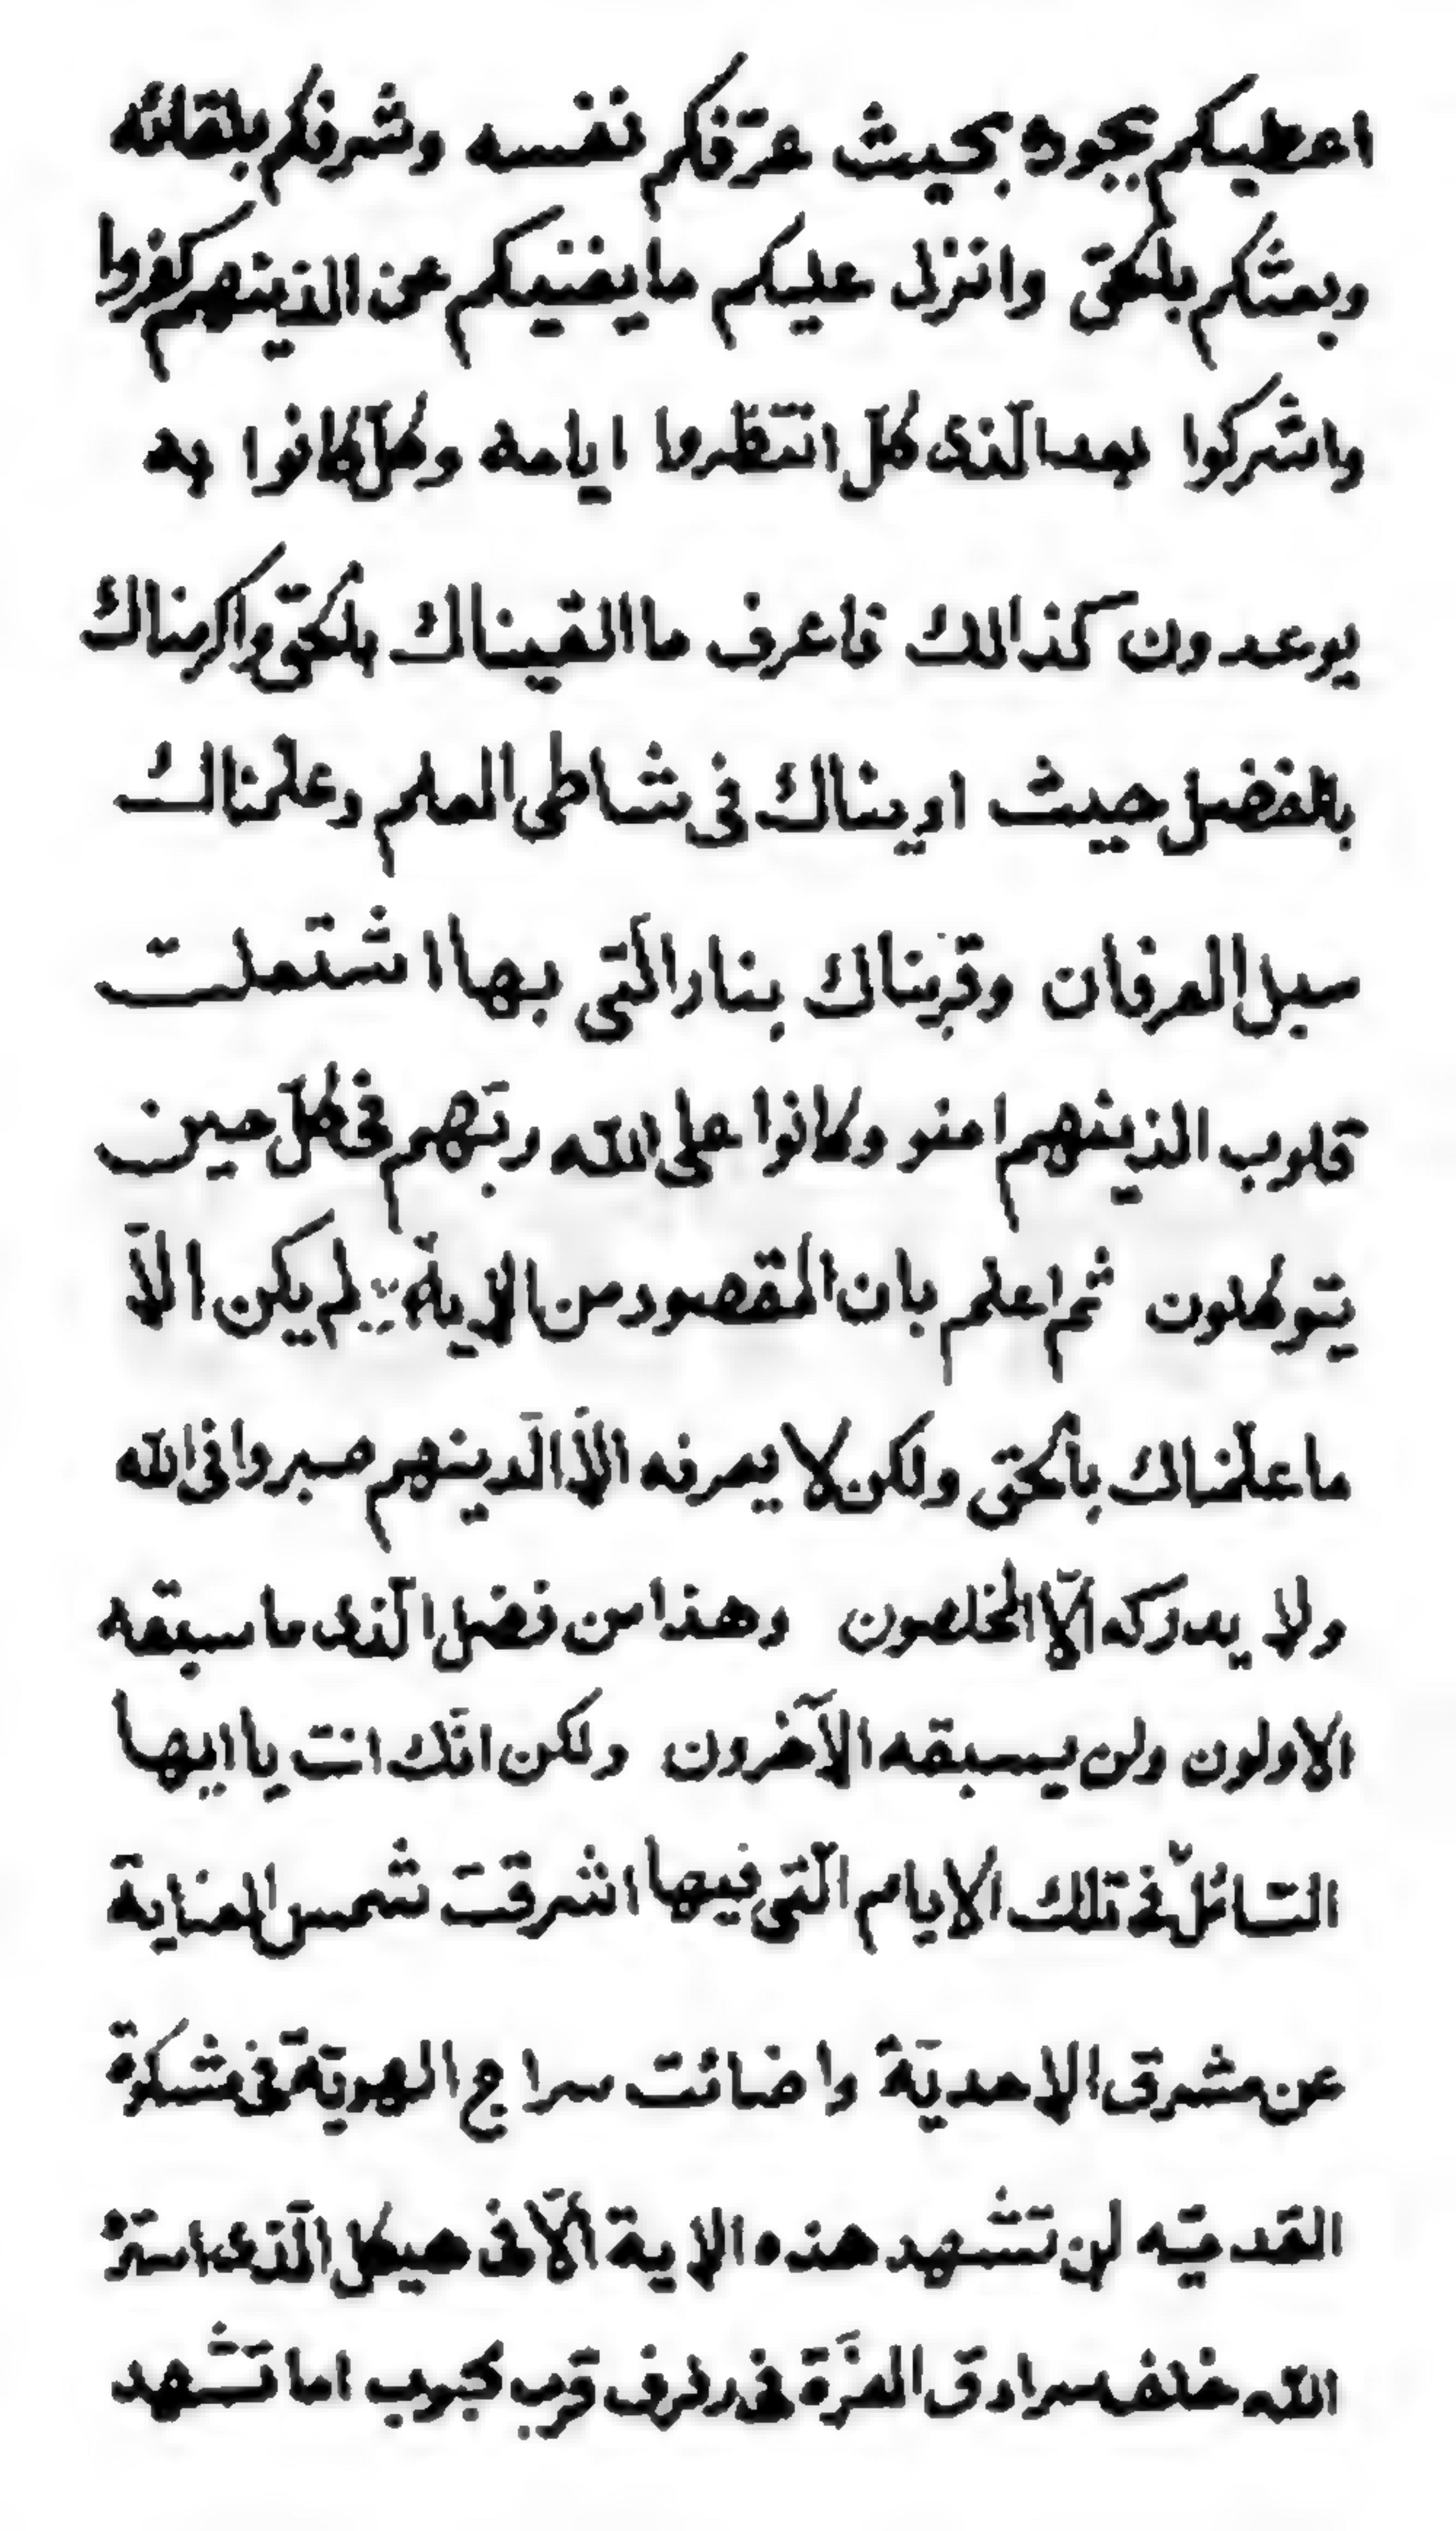 اعطيكم بجوده بحيث عرّفكم نفسه وشرفكم بلقائه
وبعثكم بلحقّ وانزل عليكم ما يغنيكم عن الذينهم كفروا
واشركوا بعد الّذى كلّ انتظروا ايامه وكلّ كانوا به
يوعدون كذالك فاعرف ما القيناك بلحقّ واكرمناك
بالفضل حيث اويناك فى شاطى العلم وعلّمناك
سبل العرفان وقرّبناك بنار الّتى بها اشتعلت
قلوب الذينهم امنو وكانوا على اللّه ربّهم فى كلّ حين
يتوكلون ثم اعلم بان المقصود من الاية لم يكن الّا
ما علّمناك بالحق ولكن لا يعرفه الّا الّذينهم صبروا فى اللّه
ولا يدركه الّا المخلصون وهذا من فضل الّذى ما سبقه
الاولون ولن يسبقه الآخرون ولكن انّك انت يا ايها
السّائل فى تلك الايام الّتى فيها اشرقت شمس العناية
عن مشرق الاحديّة واضائت سراج الهويّة فى مشكوة
القدميّه لن تشهد هذه الاية الّا فى هيكل الّذى استرّ
اللّه خلف سرادق العزّة فى رفرف قرب محبوب اما تشهد